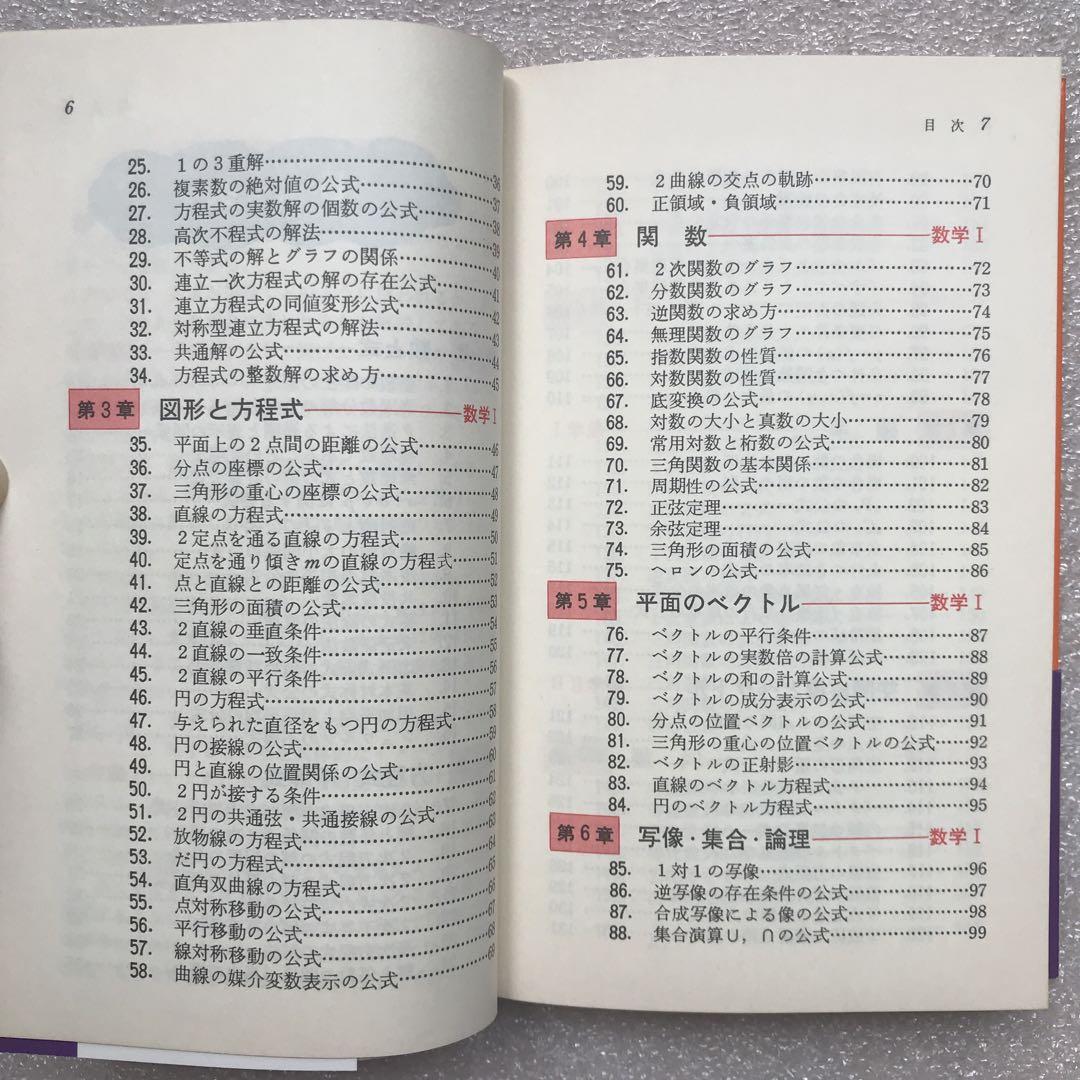 6
25. 1の3重解……36
26. 複素数の絶対値の公式……37
27. 方程式の実数解の個数の公式……38
28. 高次不程式の解法……39
29. 不等式の解とグラフの関係……40
30. 連立一次方程式の解の存在公式……41
31. 連立方程式の同値変形公式……42
32. 対称型連立方程式の解法……43
33. 共通解の公式……44
34. 方程式の整数解の求め方……45
第3章 図形と方程式――数学Ⅰ
35. 平面上の2点間の距離の公式……46
36. 分点の座標の公式……47
37. 三角形の重心の座標の公式……48
38. 直線の方程式……49
39. 2定点を通る直線の方程式……50
40. 定点を通り傾きmの直線の方程式……51
41. 点と直線との距離の公式……52
42. 三角形の面積の公式……53
43. 2直線の垂直条件……54
44. 2直線の一致条件……55
45. 2直線の平行条件……56
46. 円の方程式……57
47. 与えられた直径をもつ円の方程式……58
48. 円の接線の公式……59
49. 円と直線の位置関係の公式……60
50. 2円が接する条件……61
51. 2円の共通弦・共通接線の公式……62
52. 放物線の方程式……63
53. だ円の方程式……64
54. 直角双曲線の方程式……65
55. 点対称移動の公式……66
56. 平行移動の公式……67
57. 線対称移動の公式……68
58. 曲線の媒介変数表示の公式……69
目次 7
59. 2曲線の交点の軌跡……70
60. 正領域・負領域……71
第4章 関数――数学Ⅰ
61. 2次関数のグラフ……72
62. 分数関数のグラフ……73
63. 逆関数の求め方……74
64. 無理関数のグラフ……75
65. 指数関数の性質……76
66. 対数関数の性質……77
67. 底変換の公式……78
68. 対数の大小と真数の大小……79
69. 常用対数と桁数の公式……80
70. 三角関数の基本関係……81
71. 周期性の公式……82
72. 正弦定理……83
73. 余弦定理……84
74. 三角形の面積の公式……85
75. ヘロンの公式……86
第5章 平面のベクトル――数学Ⅰ
76. ベクトルの平行条件……87
77. ベクトルの実数倍の計算公式……88
78. ベクトルの和の計算公式……89
79. ベクトルの成分表示の公式……90
80. 分点の位置ベクトルの公式……91
81. 三角形の重心の位置ベクトルの公式……92
82. ベクトルの正射影……93
83. 直線のベクトル方程式……94
84. 円のベクトル方程式……95
第6章 写像・集合・論理――数学Ⅰ
85. 1対1の写像……96
86. 逆写像の存在条件の公式……97
87. 合成写像による像の公式……98
88. 集合演算∪，∩の公式……99